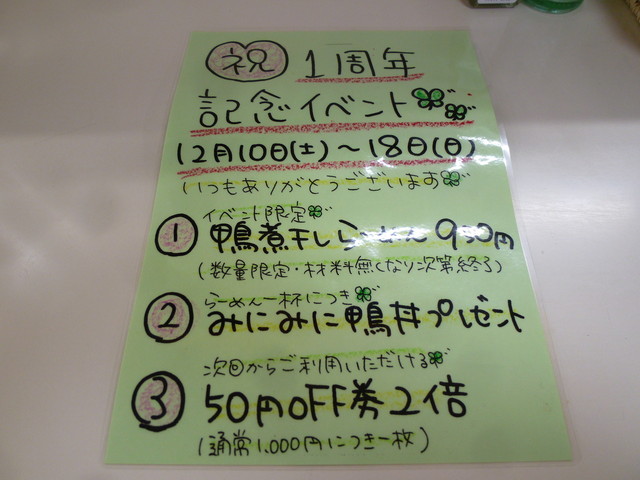 祝 1周年
記念イベント
12月10日(土)~18日(日)
いつもありがとうございます
イベント限定
① 鴨煮干しらーめん 950円
(数量限定・材料無くなり次第終了)
らーめん一杯につき
② みにみに鴨丼プレゼント
次回からご利用いただける
③ 50円OFF券2倍
(通常1,000円につき一枚)